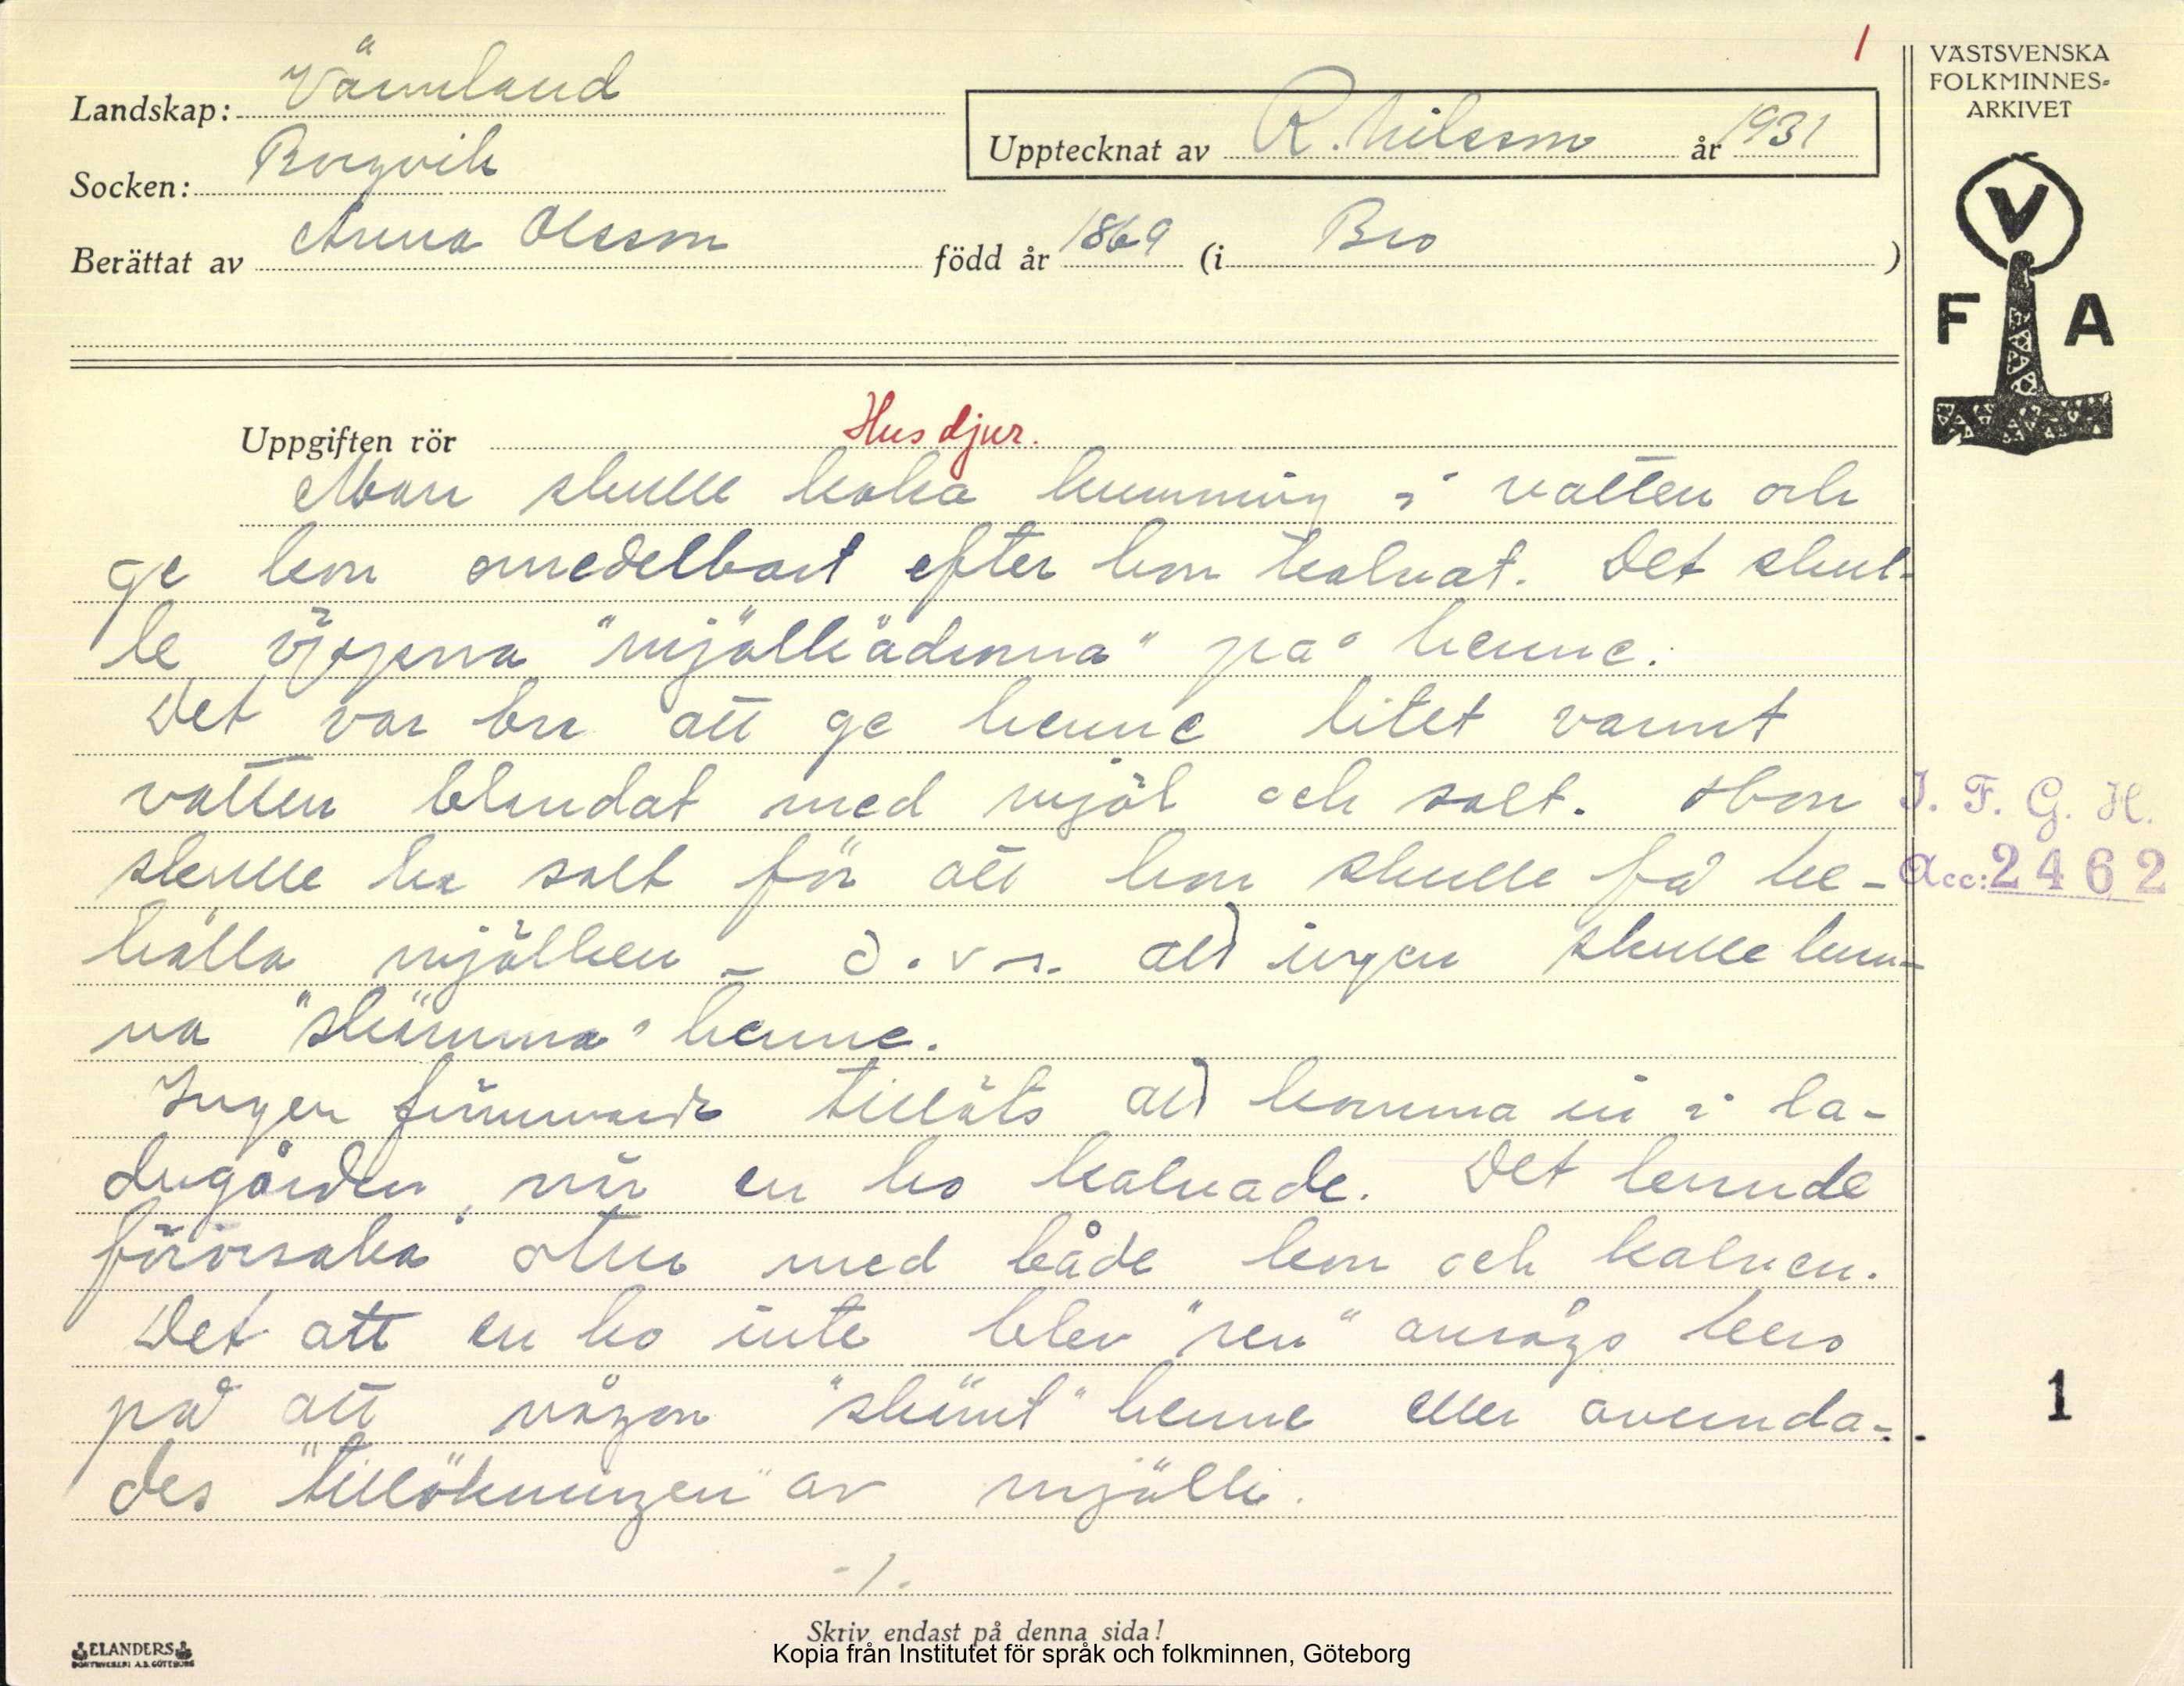 1
VÄSTSVENSKA
FOLKMINNES-
ARKIVET
Landskap: Värmland
Upptecknat av R. Nilsson år 1931
Socken: Borgvik
Berättat av Anna Olsson född år 1869 (i Bro)
V
F A
Uppgiften rör Husdjur.
Man skulle koka kumming i vatten och
ge kon omedelbart efter hon kalvat. Det skul-
le öppna "mjölkådrorna" på henne.
Det var bra att ge henne litet varmt
vatten blandat med mjöl och salt. Hon
skulle ha salt för att hon skulle få be-
hålla mjölken - d.v.s. att ingen skulle kun-
na "skämma" henne.
Ingen främmande tilläts att komma in i la-
dugården, när en ko kalvade. Det kunde
förorsaka otur med både kon och kalven.
Det att en ko inte blev "ren" ansågs bero
på att någon "skämt" henne eller avunda-
des "tillökningen" av mjölk.
-/-
I. F. G. H.
Acc: 2462
1
Skriv endast på denna sida!
ELANDERS
BOKTRYCKERI A.B. GÖTEBORG
Kopia från Institutet för språk och folkminnen, Göteborg